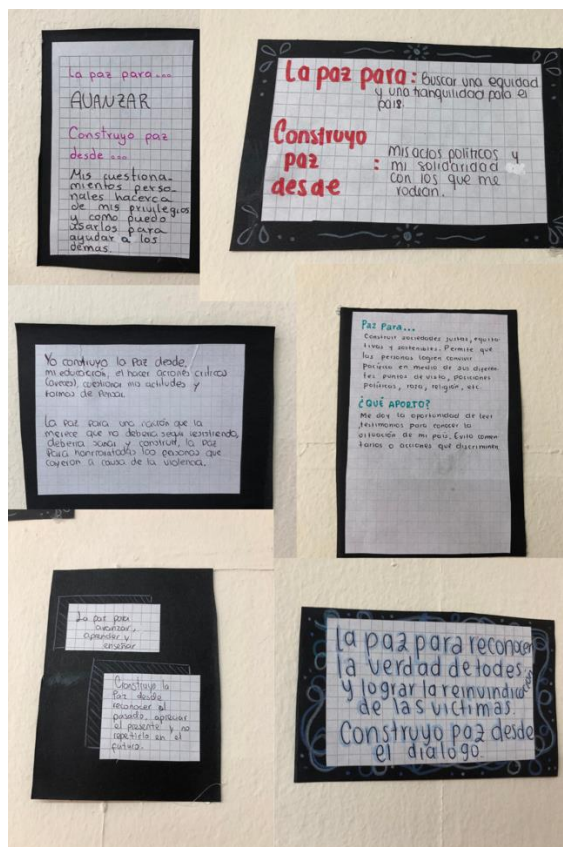 La paz para...
AVANZAR
Construyo paz
desde ...
Mis cuestiona-
mientos perso-
nales hacerca
de mis privilegios
y como puedo
usarlos para
ayudar a los
demas.
La paz para: Buscar una equidad
y una tranquilidad para el
país.
Construyo
paz
desde :
Mis actos politicos y
mi solidaridad
con los que me
rodean.
Yo construyo la Paz desde,
mi educación, el hacer acciones criticas
cuestionar mis actitudes y
formas de Pensar.
La Paz Para una nación que la
merece que no debería seguir resistiendo,
debería sanar y construir, la Paz
Para honrar todas las personas que
cayeron a causa de la violencia.
Paz Para...
Construir sociedades justas, equita-
tivas y sostenibles. Permite que
las personas logren convivir
pacífica en medio de sus diferen-
tes puntos de vista, posiciones
políticas, raza, religión, etc.
¿QUÉ APORTO?
Me doy la oportunidad de leer
testimonios para conocer la
situación de mi país. Evito comen-
tarios o acciones que discriminen
La paz para
avanzar,
aprender y
enseñar
Construyo la
Paz desde
reconocer el
pasado, apreciar
el presente y no
repetirlo en el
futuro.
la paz para reconocer
la verdad de todes
y lograr la reinvindica
de las victimas. ción
Construyo paz desde
el dialogo.